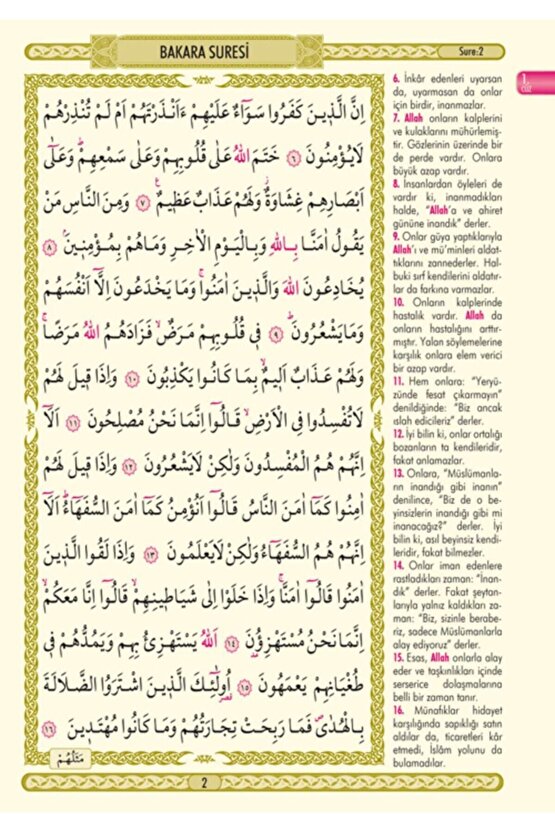 BAKARA SURESİ
Sure:2
1.
CÜZ
اِنَّ الَّذ۪ينَ كَفَرُوا سَوَٓاءٌ عَلَيْهِمْ ءَاَنْذَرْتَهُمْ اَمْ لَمْ تُنْذِرْهُمْ
لَايُؤْمِنُونَ ﴿٦﴾ خَتَمَ اللّٰهُ عَلٰى قُلُوبِهِمْ وَعَلٰى سَمْعِهِمْۜ وَعَلٰٓى
اَبْصَارِهِمْ غِشَاوَةٌۘ وَلَهُمْ عَذَابٌ عَظ۪يمٌ۟ ﴿٧﴾ وَمِنَ النَّاسِ مَنْ
يَقُولُ اٰمَنَّا بِاللّٰهِ وَبِالْيَوْمِ الْاٰخِرِ وَمَاهُمْ بِمُؤْمِن۪ينَۢ ﴿٨﴾
يُخَادِعُونَ اللّٰهَ وَالَّذ۪ينَ اٰمَنُواۚ وَمَا يَخْدَعُونَ اِلَّٓا اَنْفُسَهُمْ
وَمَايَشْعُرُونَۜ ﴿٩﴾ ف۪ي قُلُوبِهِمْ مَرَضٌۙ فَزَادَهُمُ اللّٰهُ مَرَضًاۚ
وَلَهُمْ عَذَابٌ اَل۪يمٌ بِمَا كَانُوا يَكْذِبُونَ ﴿١٠﴾ وَاِذَا ق۪يلَ لَهُمْ
لَاتُفْسِدُوا فِي الْاَرْضِۙ قَالُٓوا اِنَّمَا نَحْنُ مُصْلِحُونَ ﴿١١﴾ اَلَٓا
اِنَّهُمْ هُمُ الْمُفْسِدُونَ وَلٰكِنْ لَايَشْعُرُونَ ﴿١٢﴾ وَاِذَا ق۪يلَ لَهُمْ
اٰمِنُوا كَمَٓا اٰمَنَ النَّاسُ قَالُٓوا اَنُؤْمِنُ كَمَٓا اٰمَنَ السُّفَهَٓاءُۜ اَلَٓا
اِنَّهُمْ هُمُ السُّفَهَٓاءُ وَلٰكِنْ لَايَعْلَمُونَ ﴿١٣﴾ وَاِذَا لَقُوا الَّذ۪ينَ
اٰمَنُوا قَالُٓوا اٰمَنَّاۚ وَاِذَا خَلَوْا اِلٰى شَيَاط۪ينِهِمْۙ قَالُٓوا اِنَّا مَعَكُمْۙ
اِنَّمَا نَحْنُ مُسْتَهْزِؤُ۫نَ ﴿١٤﴾ اَللّٰهُ يَسْتَهْزِئُ بِهِمْ وَيَمُدُّهُمْ ف۪ي
طُغْيَانِهِمْ يَعْمَهُونَ ﴿١٥﴾ اُو۬لٰٓئِكَ الَّذ۪ينَ اشْتَرَوُا الضَّلَالَةَ
بِالْهُدٰىۖ فَمَا رَبِحَتْ تِجَارَتُهُمْ وَمَا كَانُوا مُهْتَد۪ينَ ﴿١٦﴾
مَثَلُهُمْ
2
6. İnkâr edenleri uyarsan
da, uyarmasan da onlar
için birdir, inanmazlar.
7. Allah onların kalplerini
ve kulaklarını mühürlemiş-
tir. Gözlerinin üzerinde bir
de perde vardır. Onlara
büyük azap vardır.
8. İnsanlardan öyleleri de
vardır ki, inanmadıkları
halde, "Allah'a ve ahiret
gününe inandık" derler.
9. Onlar güya yaptıklarıyla
Allah'ı ve mü'minleri aldat-
tıklarını zannederler. Hal-
buki sırf kendilerini aldatır-
lar da farkına varmazlar.
10. Onların kalplerinde
hastalık vardır. Allah da
onların hastalığını arttır-
mıştır. Yalan söylemelerine
karşılık onlara elem verici
bir azap vardır.
11. Hem onlara: "Yeryü-
zünde fesat çıkarmayın"
denildiğinde: "Biz ancak
ıslah edicileriz" derler.
12. İyi bilin ki, onlar ortalığı
bozanların ta kendileridir,
fakat anlamazlar.
13. Onlara, "Müslümanla-
rın inandığı gibi inanın"
denilince, "Biz de o be-
yinsizlerin inandığı gibi mi
inanacağız?" derler. İyi
bilin ki, asıl beyinsiz kendi-
leridir, fakat bilmezler.
14. Onlar iman edenlere
rastladıkları zaman: "İnan-
dık" derler. Fakat şeytan-
larıyla yalnız kaldıkları za-
man: "Biz, sizinle berabe-
riz, sadece Müslümanlarla
alay ediyoruz" derler.
15. Esas, Allah onlarla alay
eder ve taşkınlıkları içinde
serserice dolaşmalarına
belli bir zaman tanır.
16. Münafıklar hidayet
karşılığında sapıklığı satın
aldılar da, ticaretleri kâr
etmedi, İslâm yolunu da
bulamadılar.